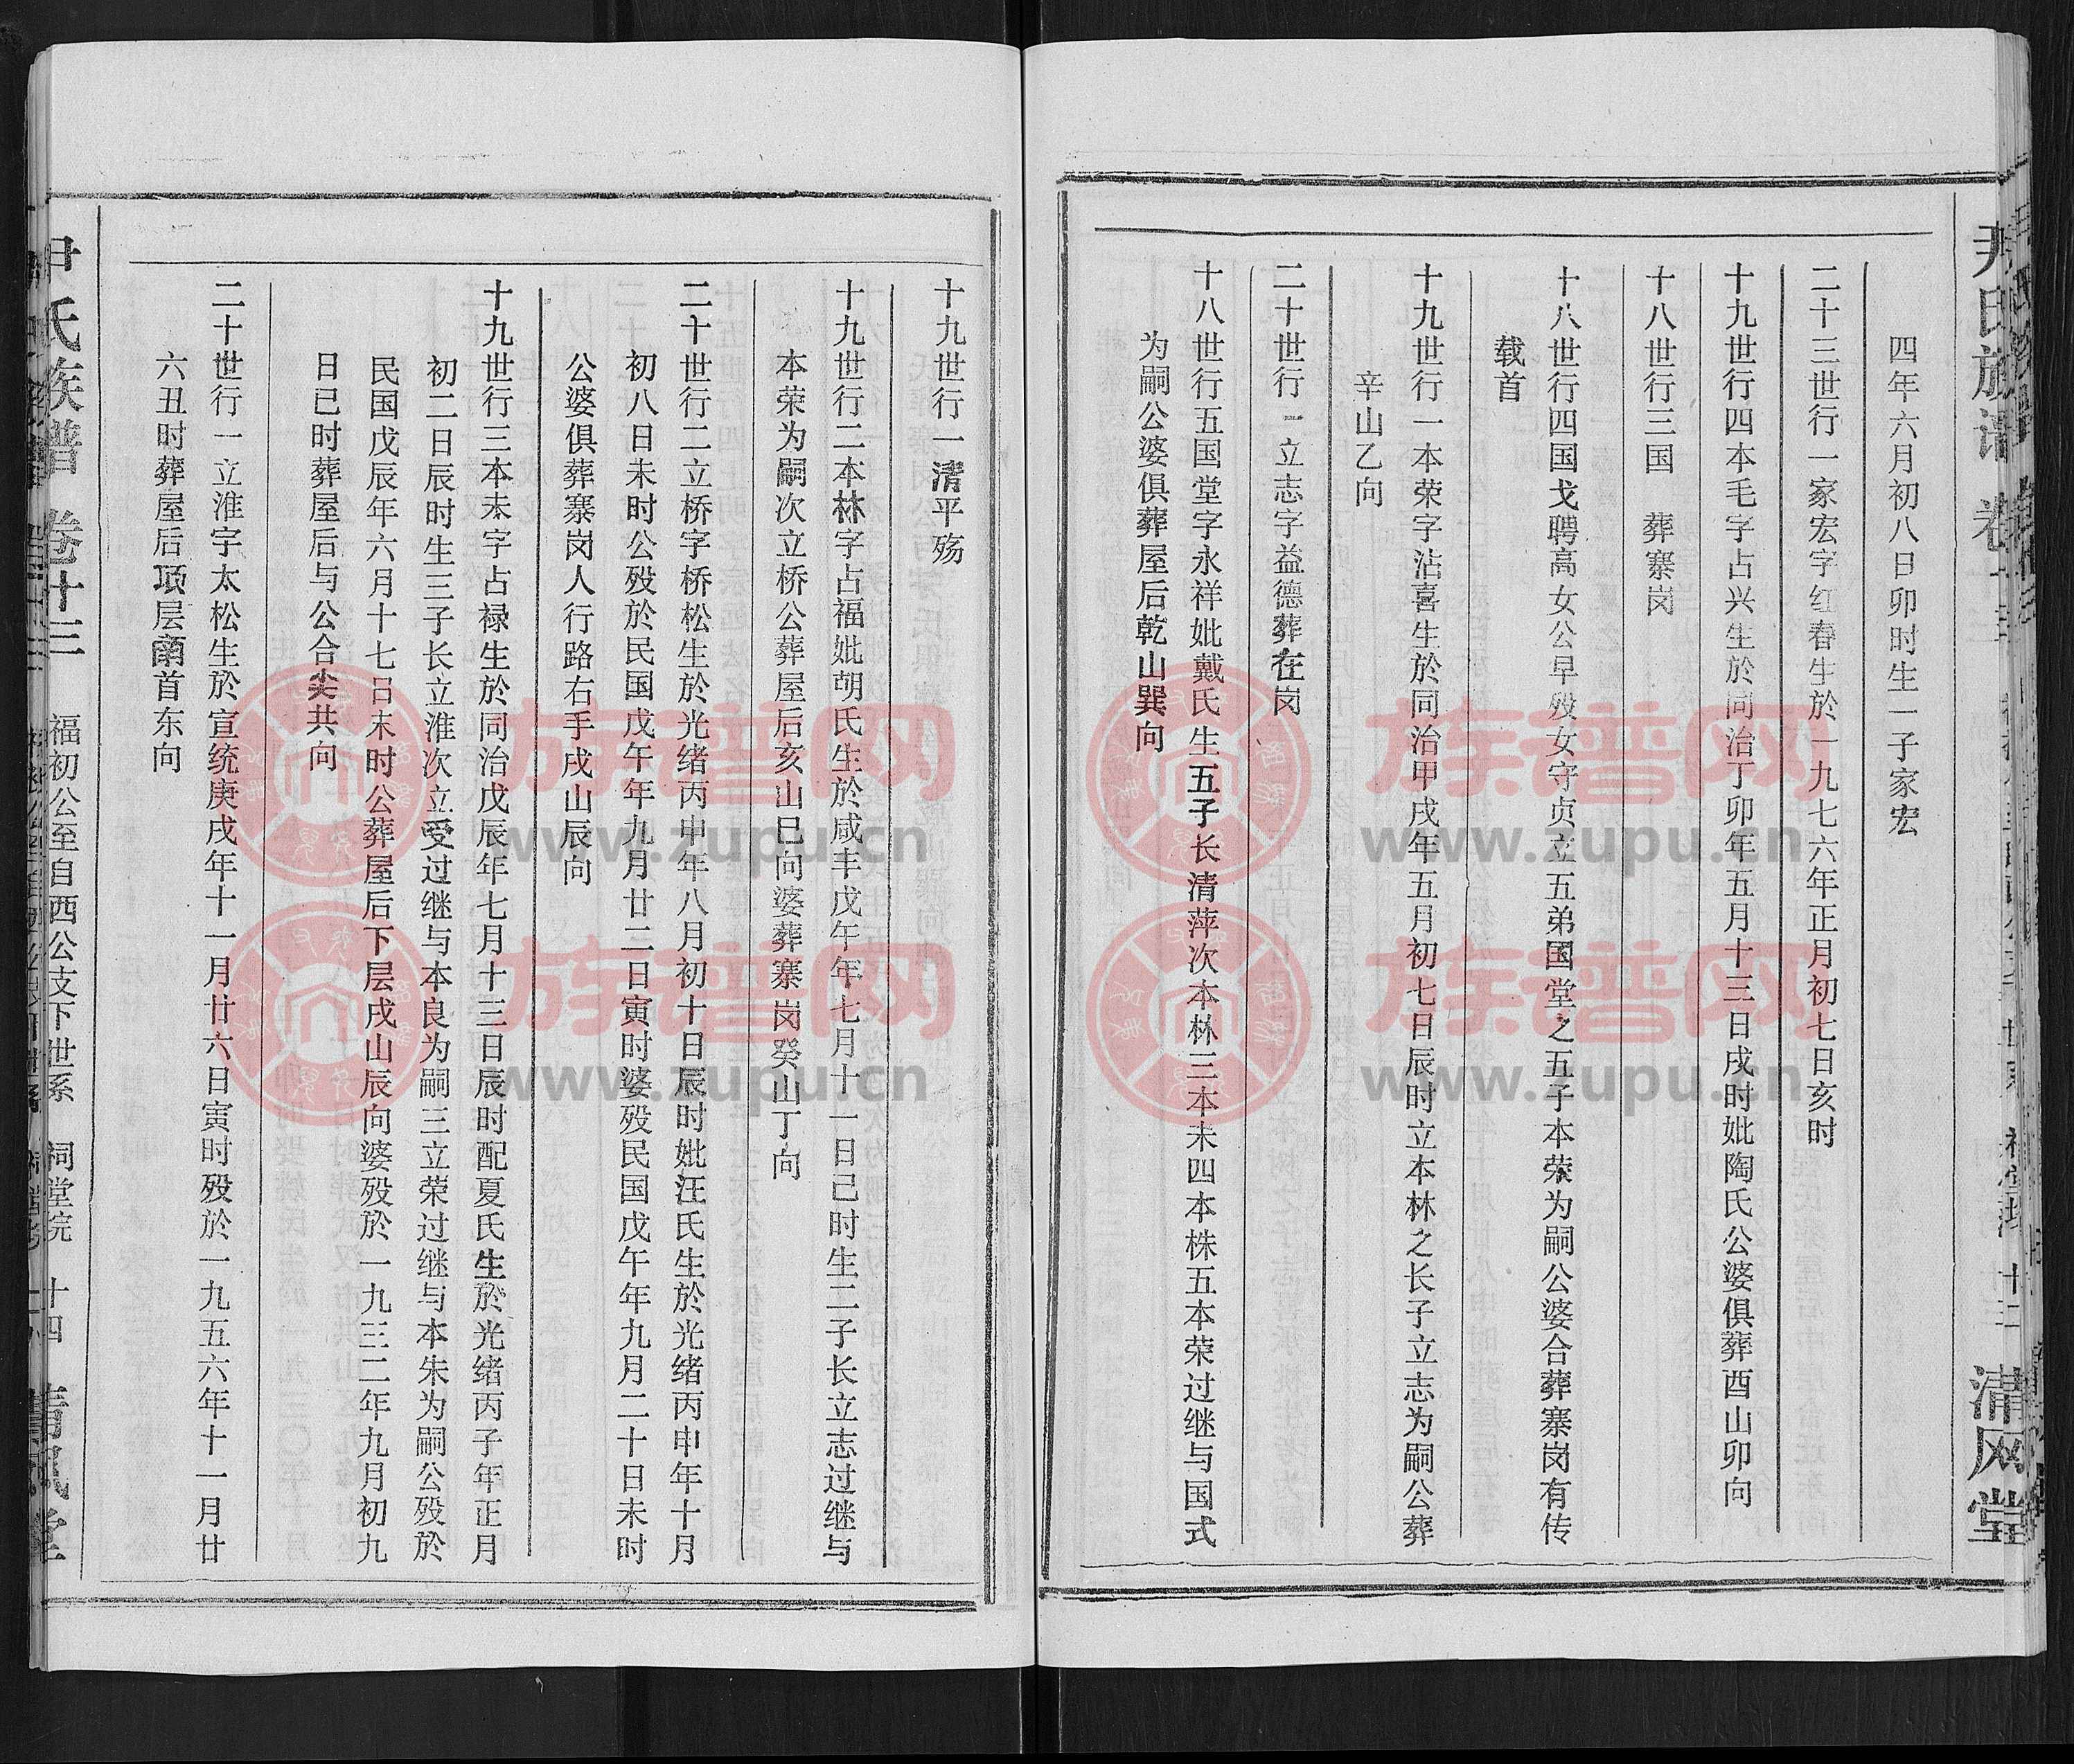 四年六月初八日卯时生一子家宏
二十三世行一家宏字红春生於一九七六年正月初七日亥时
十九世行四本毛字占兴生於同治丁卯年五月十三日戌时妣陶氏公婆俱葬酉山卯向
十八世行三国 葬寨岗
十八世行四国戈聘高女公早殁女守贞立五弟国堂之五子本荣为嗣公婆合葬寨岗有传
载首
十九世行一本荣字沾喜生於同治甲戌年五月初七日辰时立本林之长子立志为嗣公葬
辛山乙向
二十世行一立志字益德葬在岗
十八世行五国堂字永祥妣戴氏生五子长清萍次本林三本未四本株五本荣过继与国式
为嗣公婆俱葬屋后乾山巽向
尹氏族谱
清风堂
十九世行一清平殇
十九世行二本林字占福妣胡氏生於咸丰戊午年七月十一日已时生二子长立志过继与
本荣为嗣次立桥公葬屋后亥山巳向婆葬寨岗癸山丁向
二十世行二立桥字桥松生於光绪丙申年八月初十日辰时妣汪氏生於光绪丙申年十月
初八日未时公殁於民国戊午年九月廿二日寅时婆殁民国戊午年九月二十日未时
公婆俱葬寨岗人行路右手戌山辰向
十九世行三本未字占禄生於同治戊辰年七月十三日辰时配夏氏生於光绪丙子年正月
初二日辰时生三子长立淮次立受过继与本良为嗣三立荣过继与本朱为嗣公殁於
民国戊辰年六月十七日未时公葬屋后下层戌山辰向婆殁於一九三二年九月初九
日已时葬屋后与公合尖共向
二十世行一立淮字太松生於宣统庚戌年十一月廿六日寅时殁於一九五六年十一月廿
六丑时葬屋后项层南首东向
尹氏族谱 卷廿三 福初公至自西公支下世系 祠堂院 十四 清风堂
族谱网
www.zupu.cn
族谱网
www.zupu.cn
族谱网
www.zupu.cn
族谱网
www.zupu.cn